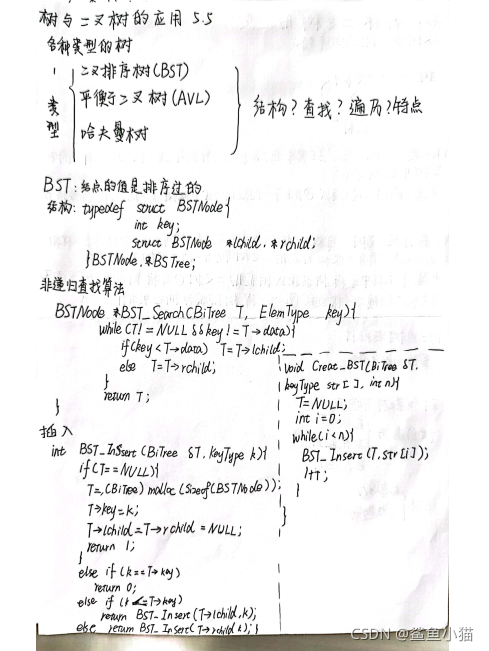 树与二叉树的应用 5.5
各种类型的树
1 类型
二叉排序树(BST)
平衡于二叉树(AVL)
哈夫曼树
结构？查找？遍历？特点
BST：结点的值是排序过的
结构：typedef struct BSTNode{
int key;
struct BSTNode *lchild, *rchild;
}BSTNode,*BSTree;
非递归查找算法
BSTNode *BST_Search(BiTree T, ElemType key){
while(T!=NULL&&key!=T->data){
if(key<T->data) T=T->lchild;
else T=T->rchild;
}
return T;
}
插入
int BST_Insert(BiTree &T, KeyType k){
if(T==NULL){
T=(BiTree)malloc(Sizeof(BSTNode));
T->key=k;
T->lchild=T->rchild=NULL;
return 1;
}
else if(k==T->key)
return 0;
else if(k<T->key)
return BST_Insert(T->lchild,k);
else return BST_Insert(T->rchild,k);}
Void Creat_BST(BiTree &T,
keyType str[], int n){
T=NULL;
int i=0;
while(i<n){
BST_Insert(T,str[i]);
i++;
}
}
CSDN @鲨鱼小猫